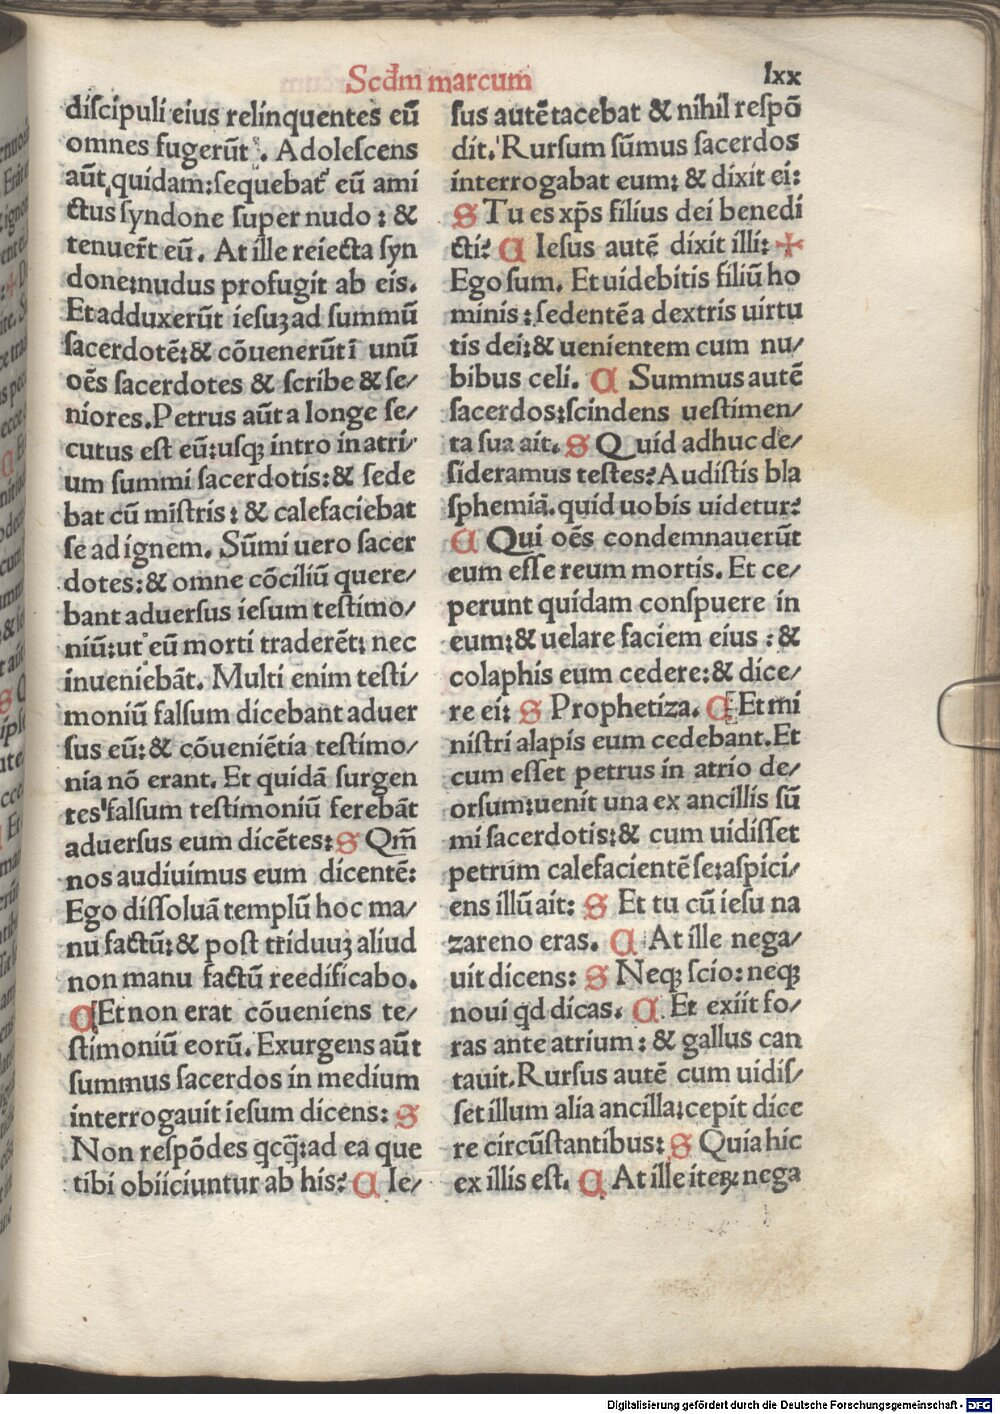 Scđm marcum
lxx
diſcipuli eius relinquentes eū
omnes fugerūt. Adoleſcens
aūt quidam:ſequebat᷑ eū ami
ctus ſyndone ſuper nudo : &
tenuer̄t eū. At ille reiecta ſyn
done:nudus profugit ab eis.
Et adduxerūt ieſuꝫ ad ſummū
ſacerdotē:& cōuenerūt ī unū
oēs ſacerdotes & ſcribe & ſe/
niores. Petrus aūt a longe ſe/
cutus eſt eū:uſqꝫ intro in atri/
um ſummi ſacerdotis:& ſede
bat cū miſtris : & calefaciebat
ſe ad ignem. Sūmi uero ſacer
dotes:& omne cōciliū quere/
bant aduerſus ieſum teſtimo/
niū:ut eū morti traderēt: nec
inueniebāt. Multi enim teſti/
moniū falſum dicebant aduer
ſus eū:& cōueniētia teſtimo/
nia nō erant. Et quidā ſurgen
tes falſum teſtimoniū ferebāt
aduerſus eum dicētes: S Qm̄
nos audiuimus eum dicentē:
Ego diſſoluā templū hoc ma/
nu factū:& poſt triduuꝫ aliud
non manu factū reedificabo.
C Et non erat cōueniens te/
ſtimoniū eorū. Exurgens aūt
ſummus ſacerdos in medium
interrogauit ieſum dicens: S
Non reſpōdes qcq̄:ad ea que
tibi obiiciuntur ab his? C Ie/
ſus autē tacebat & nihil reſpō
dit. Rurſum ſūmus ſacerdos
interrogabat eum: & dixit ei:
S Tu es xp̄s filius dei benedi
cti? C Ieſus autē dixit illi: ✠
Ego ſum. Et uidebitis filiū ho
minis : ſedentē a dextris uirtu
tis dei:& uenientem cum nu/
bibus celi. C Summus autē
ſacerdos:ſcindens ueſtimen/
ta ſua ait. S Quid adhuc de/
ſideramus teſtes? Audiſtis bla
ſphemiā. quid uobis uidetur?
C Qui oēs condemnauerūt
eum eſſe reum mortis. Et ce/
perunt quidam conſpuere in
eum:& uelare faciem eius : &
colaphis eum cedere:& dice/
re ei: S Prophetiza. C Et mi
niſtri alapis eum cedebant. Et
cum eſſet petrus in atrio de/
orſum:uenit una ex ancillis ſū
mi ſacerdotis:& cum uidiſſet
petrum calefacientē ſe:aſpici/
ens illū ait: S Et tu cū ieſu na
zareno eras. C At ille nega/
uit dicens: S Neqꝫ ſcio: neqꝫ
noui qd dicas. C Et exiit fo/
ras ante atrium : & gallus can
tauit. Rurſus autē cum uidiſ/
ſet illum alia ancilla:cepit dice
re circūſtantibus: S Quia hic
ex illis eſt. C At ille iteꝝ nega
Digitalisierung gefördert durch die Deutsche Forschungsgemeinschaft - DFG